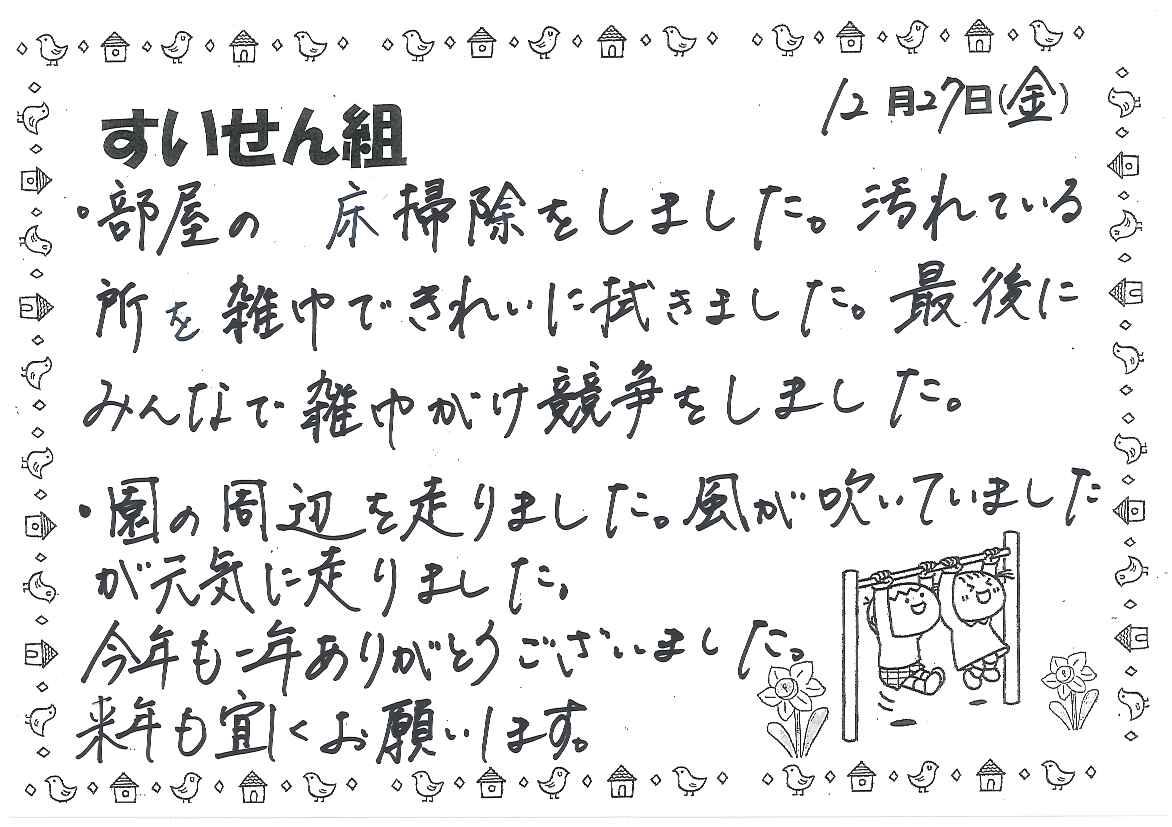 12月27日(金)
すいせん組
・部屋の 床掃除をしました。汚れている
所を雑巾できれいに拭きました。最後に
みんなで雑巾がけ競争をしました。
・園の周辺を走りました。風が吹いていました
が元気に走りました。
今年も一年ありがとうございました。
来年も宜しくお願いします。